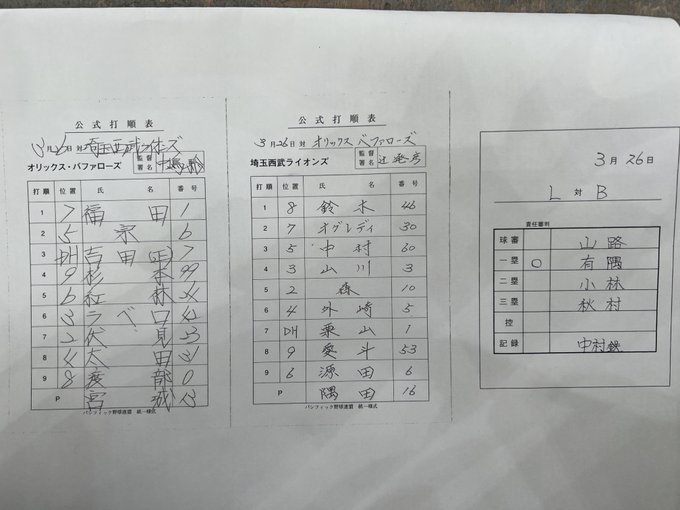 公式打順表
3月26日 対 埼玉西武ライオンズ
オリックス・バファローズ 監督署名
打順 位置 氏名 番号
1 7 福田 1
2 5 宗 6
3 DH 吉田(正) 7
4 9 杉本 99
5 6 紅林 24
6 3 ラベロ 42
7 2 伏見 23
8 4 太田 31
9 8 渡部 0
P 宮城 13
パシフィック野球連盟 統一様式
公式打順表
3月26日 対 オリックスバファローズ
埼玉西武ライオンズ 監督署名 辻
打順 位置 氏名 番号
1 8 鈴木 46
2 7 オグレディ 30
3 5 中村 60
4 3 山川 3
5 2 森 10
6 4 外崎 5
7 DH 栗山 1
8 9 愛斗 53
9 6 源田 6
P 隅田 16
パシフィック野球連盟 統一様式
3月26日
L 対 B
責任審判
球審 山路
一塁 ○ 有隅
二塁 小林
三塁 秋村
控
記録 中村